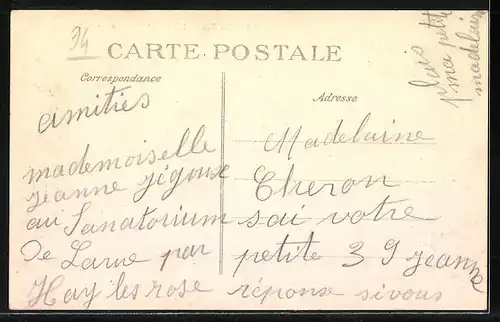 94
CARTE POSTALE
Correspondance
Adresse
amitiés
mademoiselle
jeanne jigoux
au Sanatorium
De Larue par
Hay les rose
Madelaine
Cheron
sai votre
petite 39 jeanne
réponse sivous
plais
ma petite
madelain